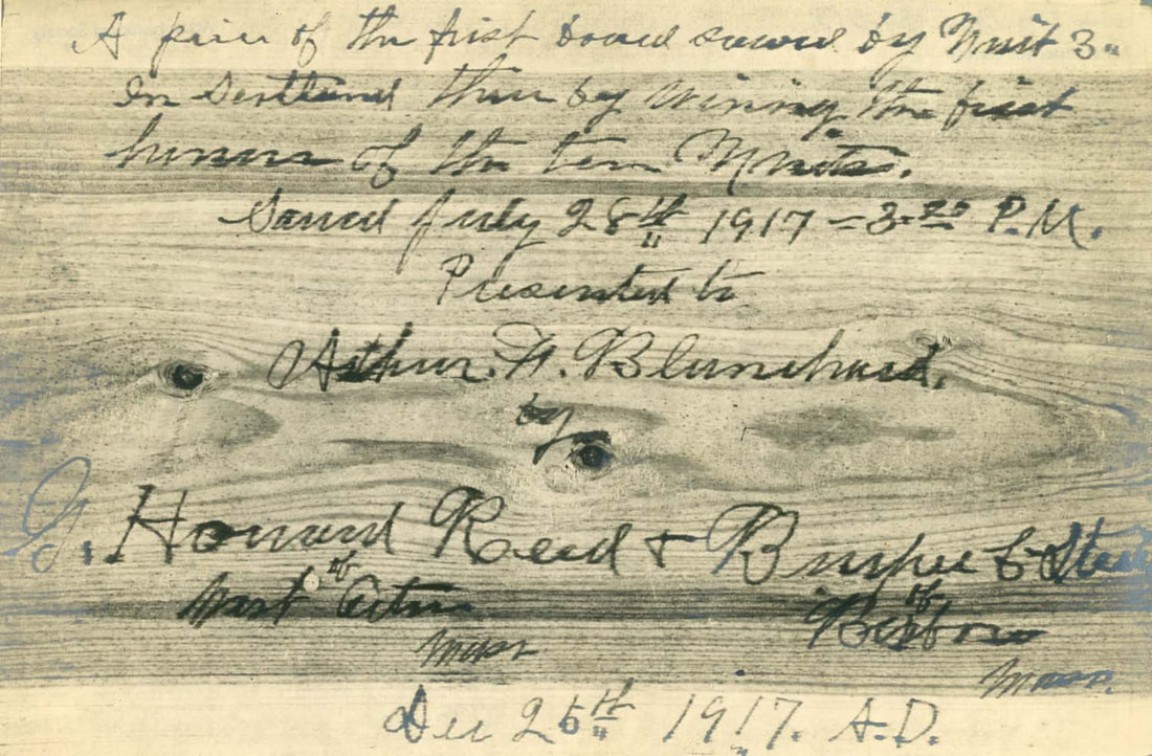 A piece of the first board sawed by Unit 3.
In Scotland thus by wining the first
honors of the ten Units.
Sawed July 28th 1917 - 3-20 P.M.
Presented to
Arthur. F. Blanchard.
by
G. Howard Reed + Burpee
of of
West Acton Boxboro
Mass
Mass.
Dec 25th 1917. A.D.